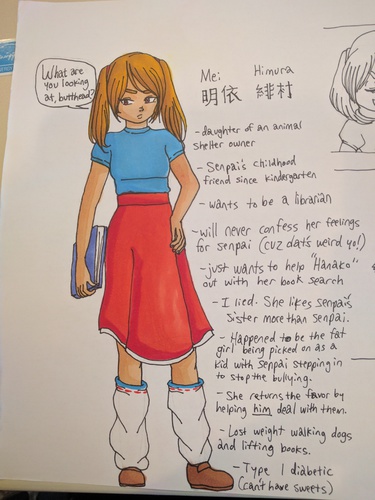 What are
you looking
at, butthead?
Mei Himura
明依 緋村
- daughter of an animal
shelter owner
- Senpai's childhood
friend since kindergarten
- wants to be a librarian
- will never confess her feelings
for senpai (cuz dat's weird yo!)
- just wants to help "Hanako"
out with her book search
- I lied. She likes senpai's
sister more than senpai.
- Happened to be the fat
girl being picked on as a
kid with senpai stepping in
to stop the bullying.
- She returns the favor by
helping him deal with them.
- Lost weight walking dogs
and lifting books.
- Type 1 diabetic
(can't have sweets)